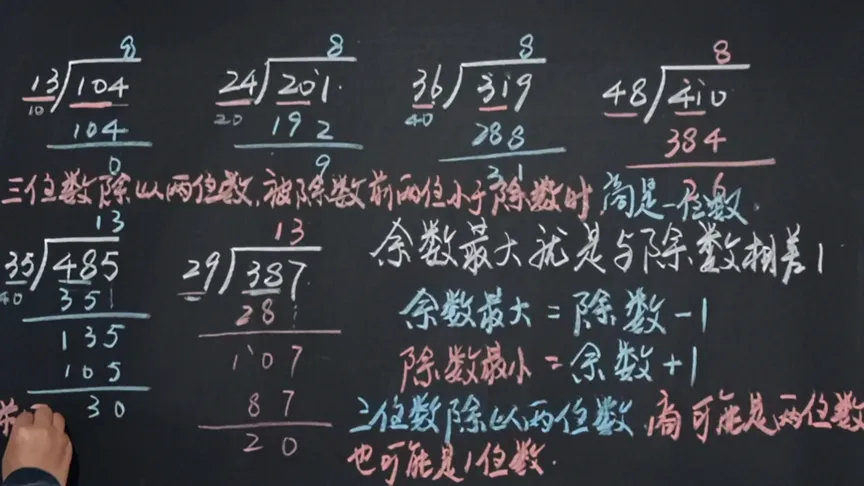 8
13 104
10
104
0
8
24 201
20
192
9
8
36 319
40
288
31
8
48 410
384
三位数除以两位数,被除数前两位小于除数时 商是一位数.
13
35 485
40
35
135
105
30
13
29 387
28
107
87
20
余数最大就是与除数相差1
余数最大=除数-1
除数最小=余数+1
三位数除以两位数,商可能是两位数
也可能是1位数.